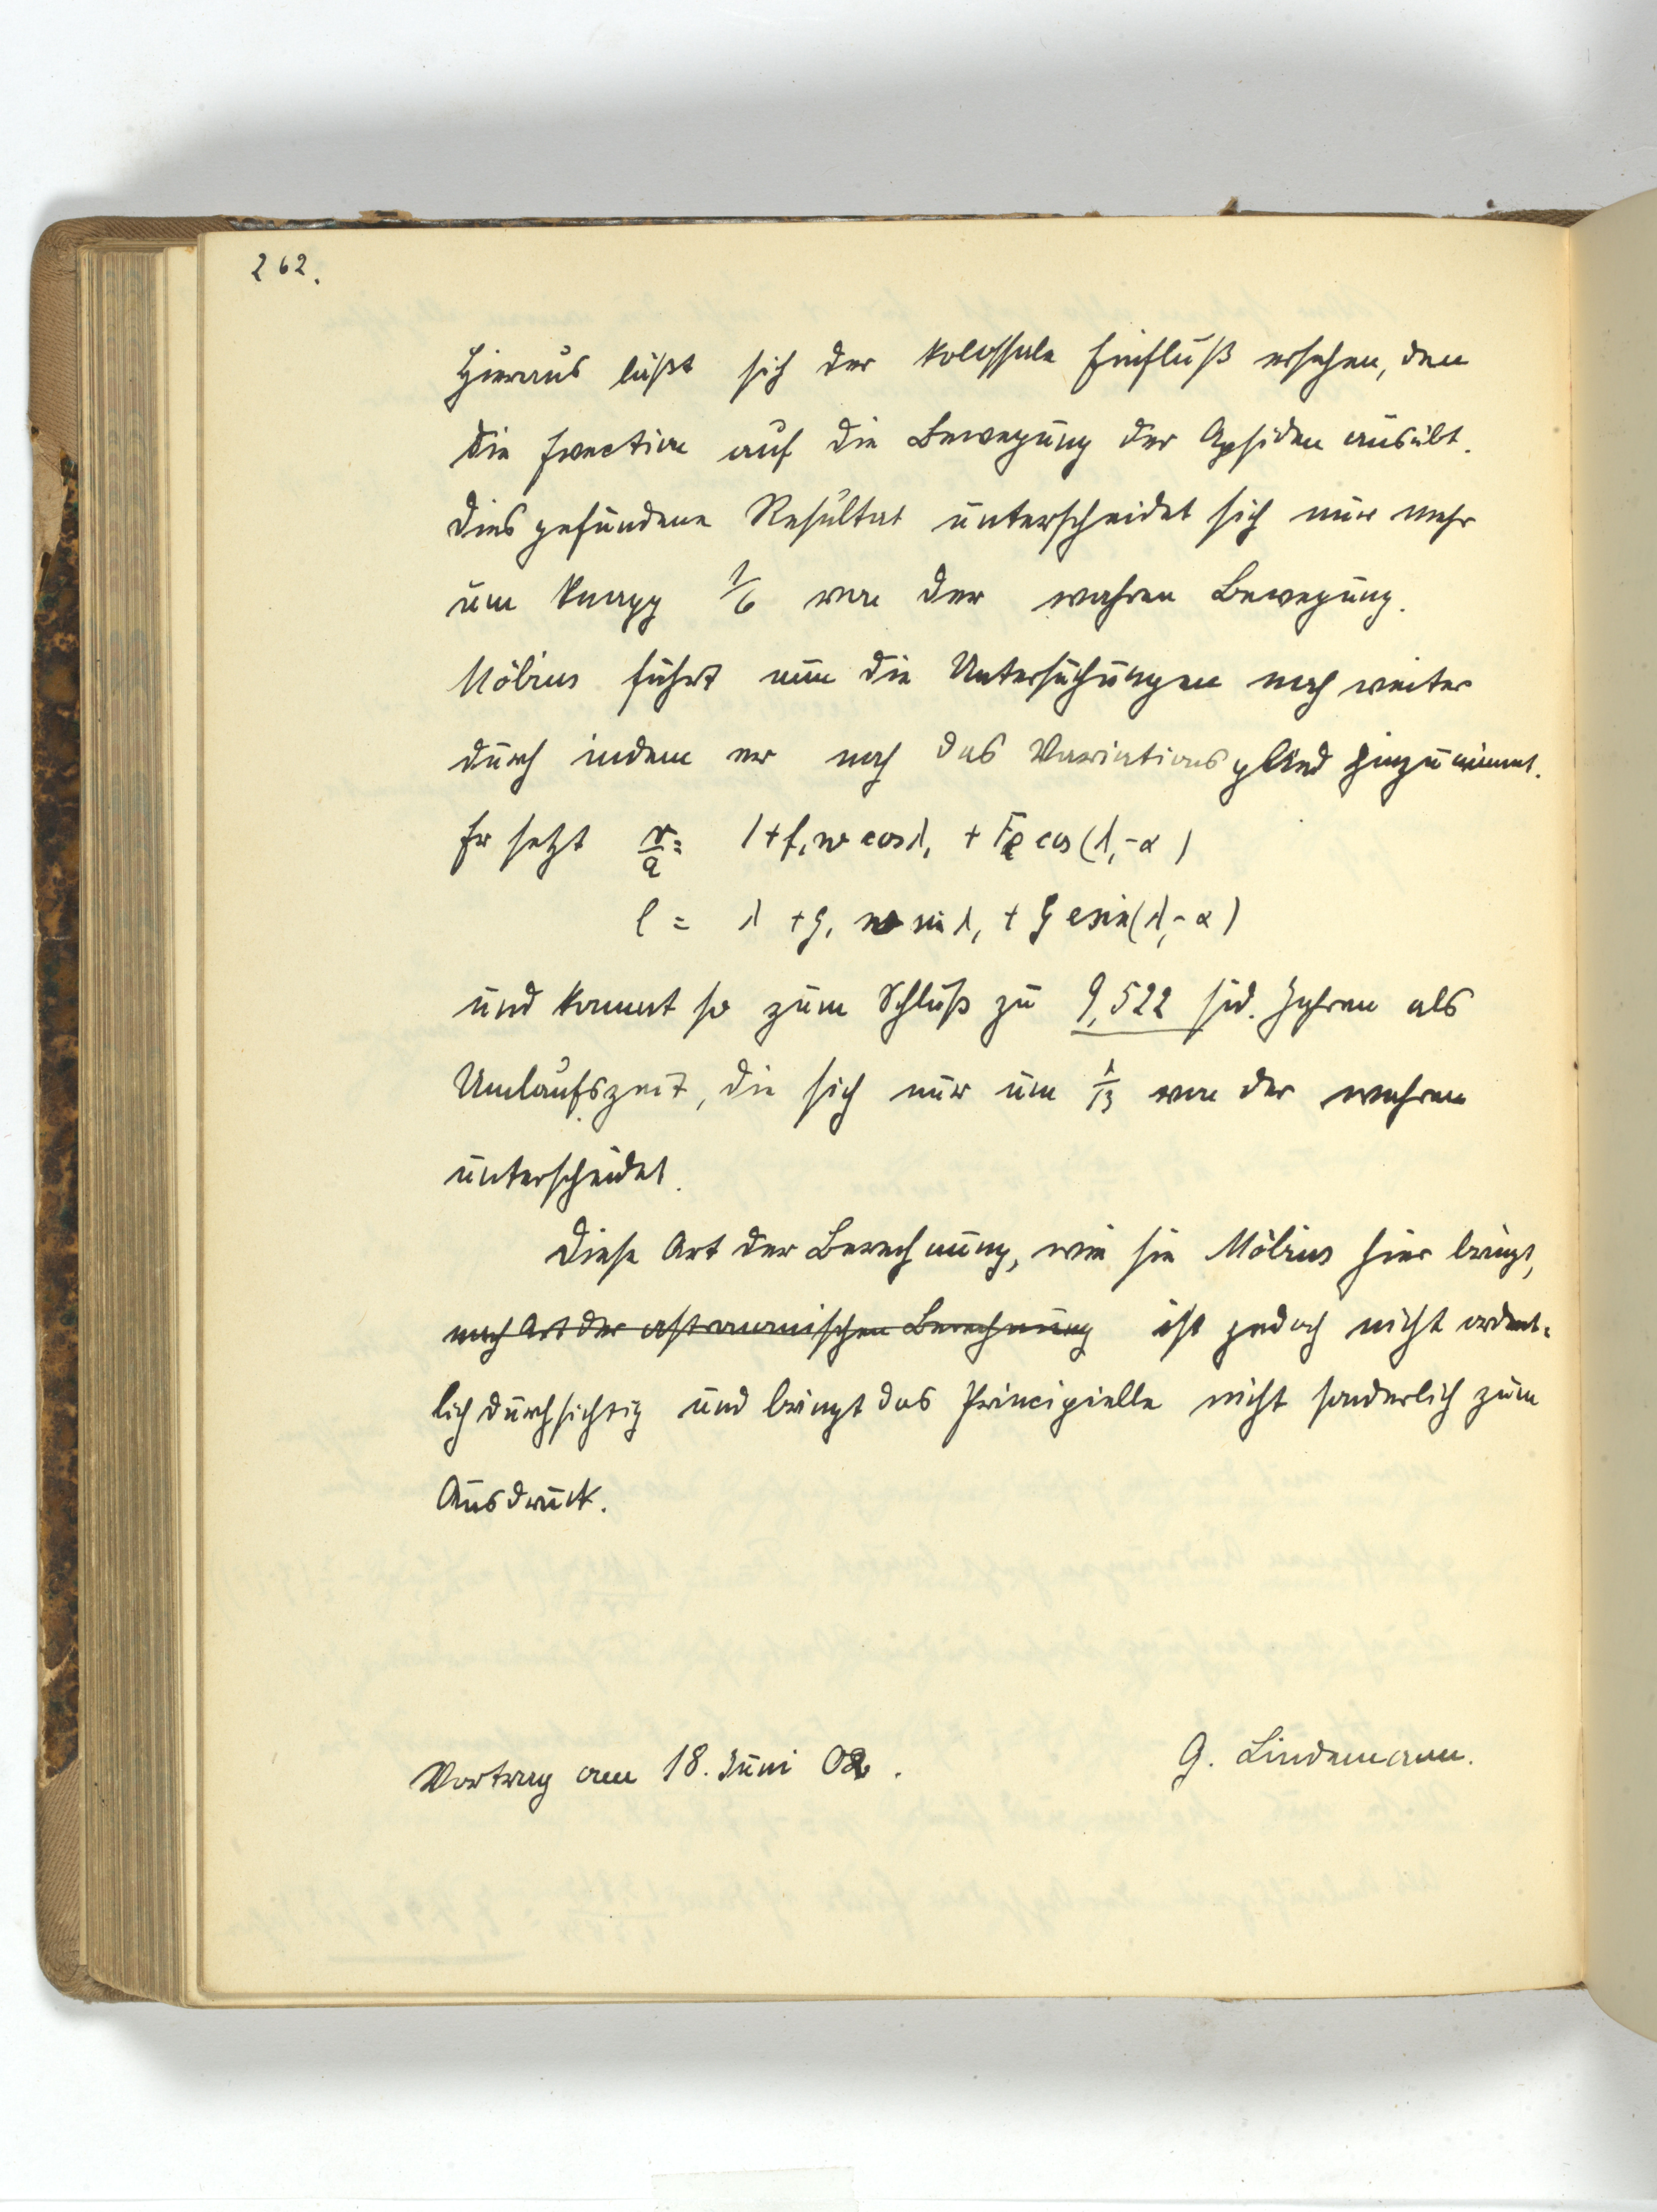 262.
Hieraus läßt sich der kolossale Einfluß ersehen, den
die Evection auf die Bewegung der Apsiden ausübt.
Dies gefundene Resultat unterscheidet sich nur mehr
um knapp 1/6 von der wahren Bewegung.
Möbius führt nun die Untersuchungen noch weiter
durch indem er noch das Variationsglied hinzunimmt.
Er setzt r/a = 1 + f₁ w cos λ₁ + F e cos (λ₁ - α)
l = λ + g₁ w sin λ₁ + G e sin (λ₁ - α)
und kommt so zum Schluß zu 9,522 sid. Jahren als
Umlaufszeit, die sich nur um 1/13 von der wahren
unterscheidet.
Diese Art der Berechnung, wie sie Möbius hier bringt,
nach Art der astronomischen Berechnung ist jedoch nicht ordent-
lich durchsichtig und bringt das Principielle nicht sonderlich zum
Ausdruck.
Vortrag am 18. Juni 02. G. Lindemann.